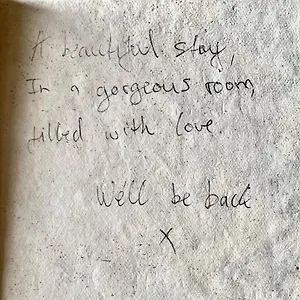 A beautiful stay,
In a gorgeous room,
filled with love.
We'll be back
X